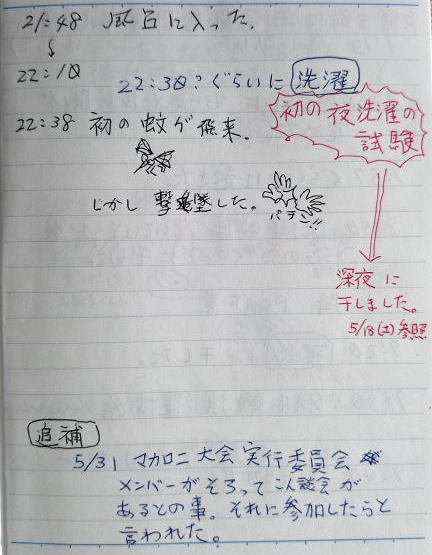 21:48 風呂に入った.
↓
22:10
22:30?ぐらいに 洗濯
初の夜洗濯の
試験
22:38 初の蚊が飛来.
しかし撃墜した。
パチン!!
深夜に
干しました。
5/18(土)参照
追補
5/31 マカロニ大会実行委員会
メンバーがそろってこん談会が
あるとの事。それに参加したらと
言われた。